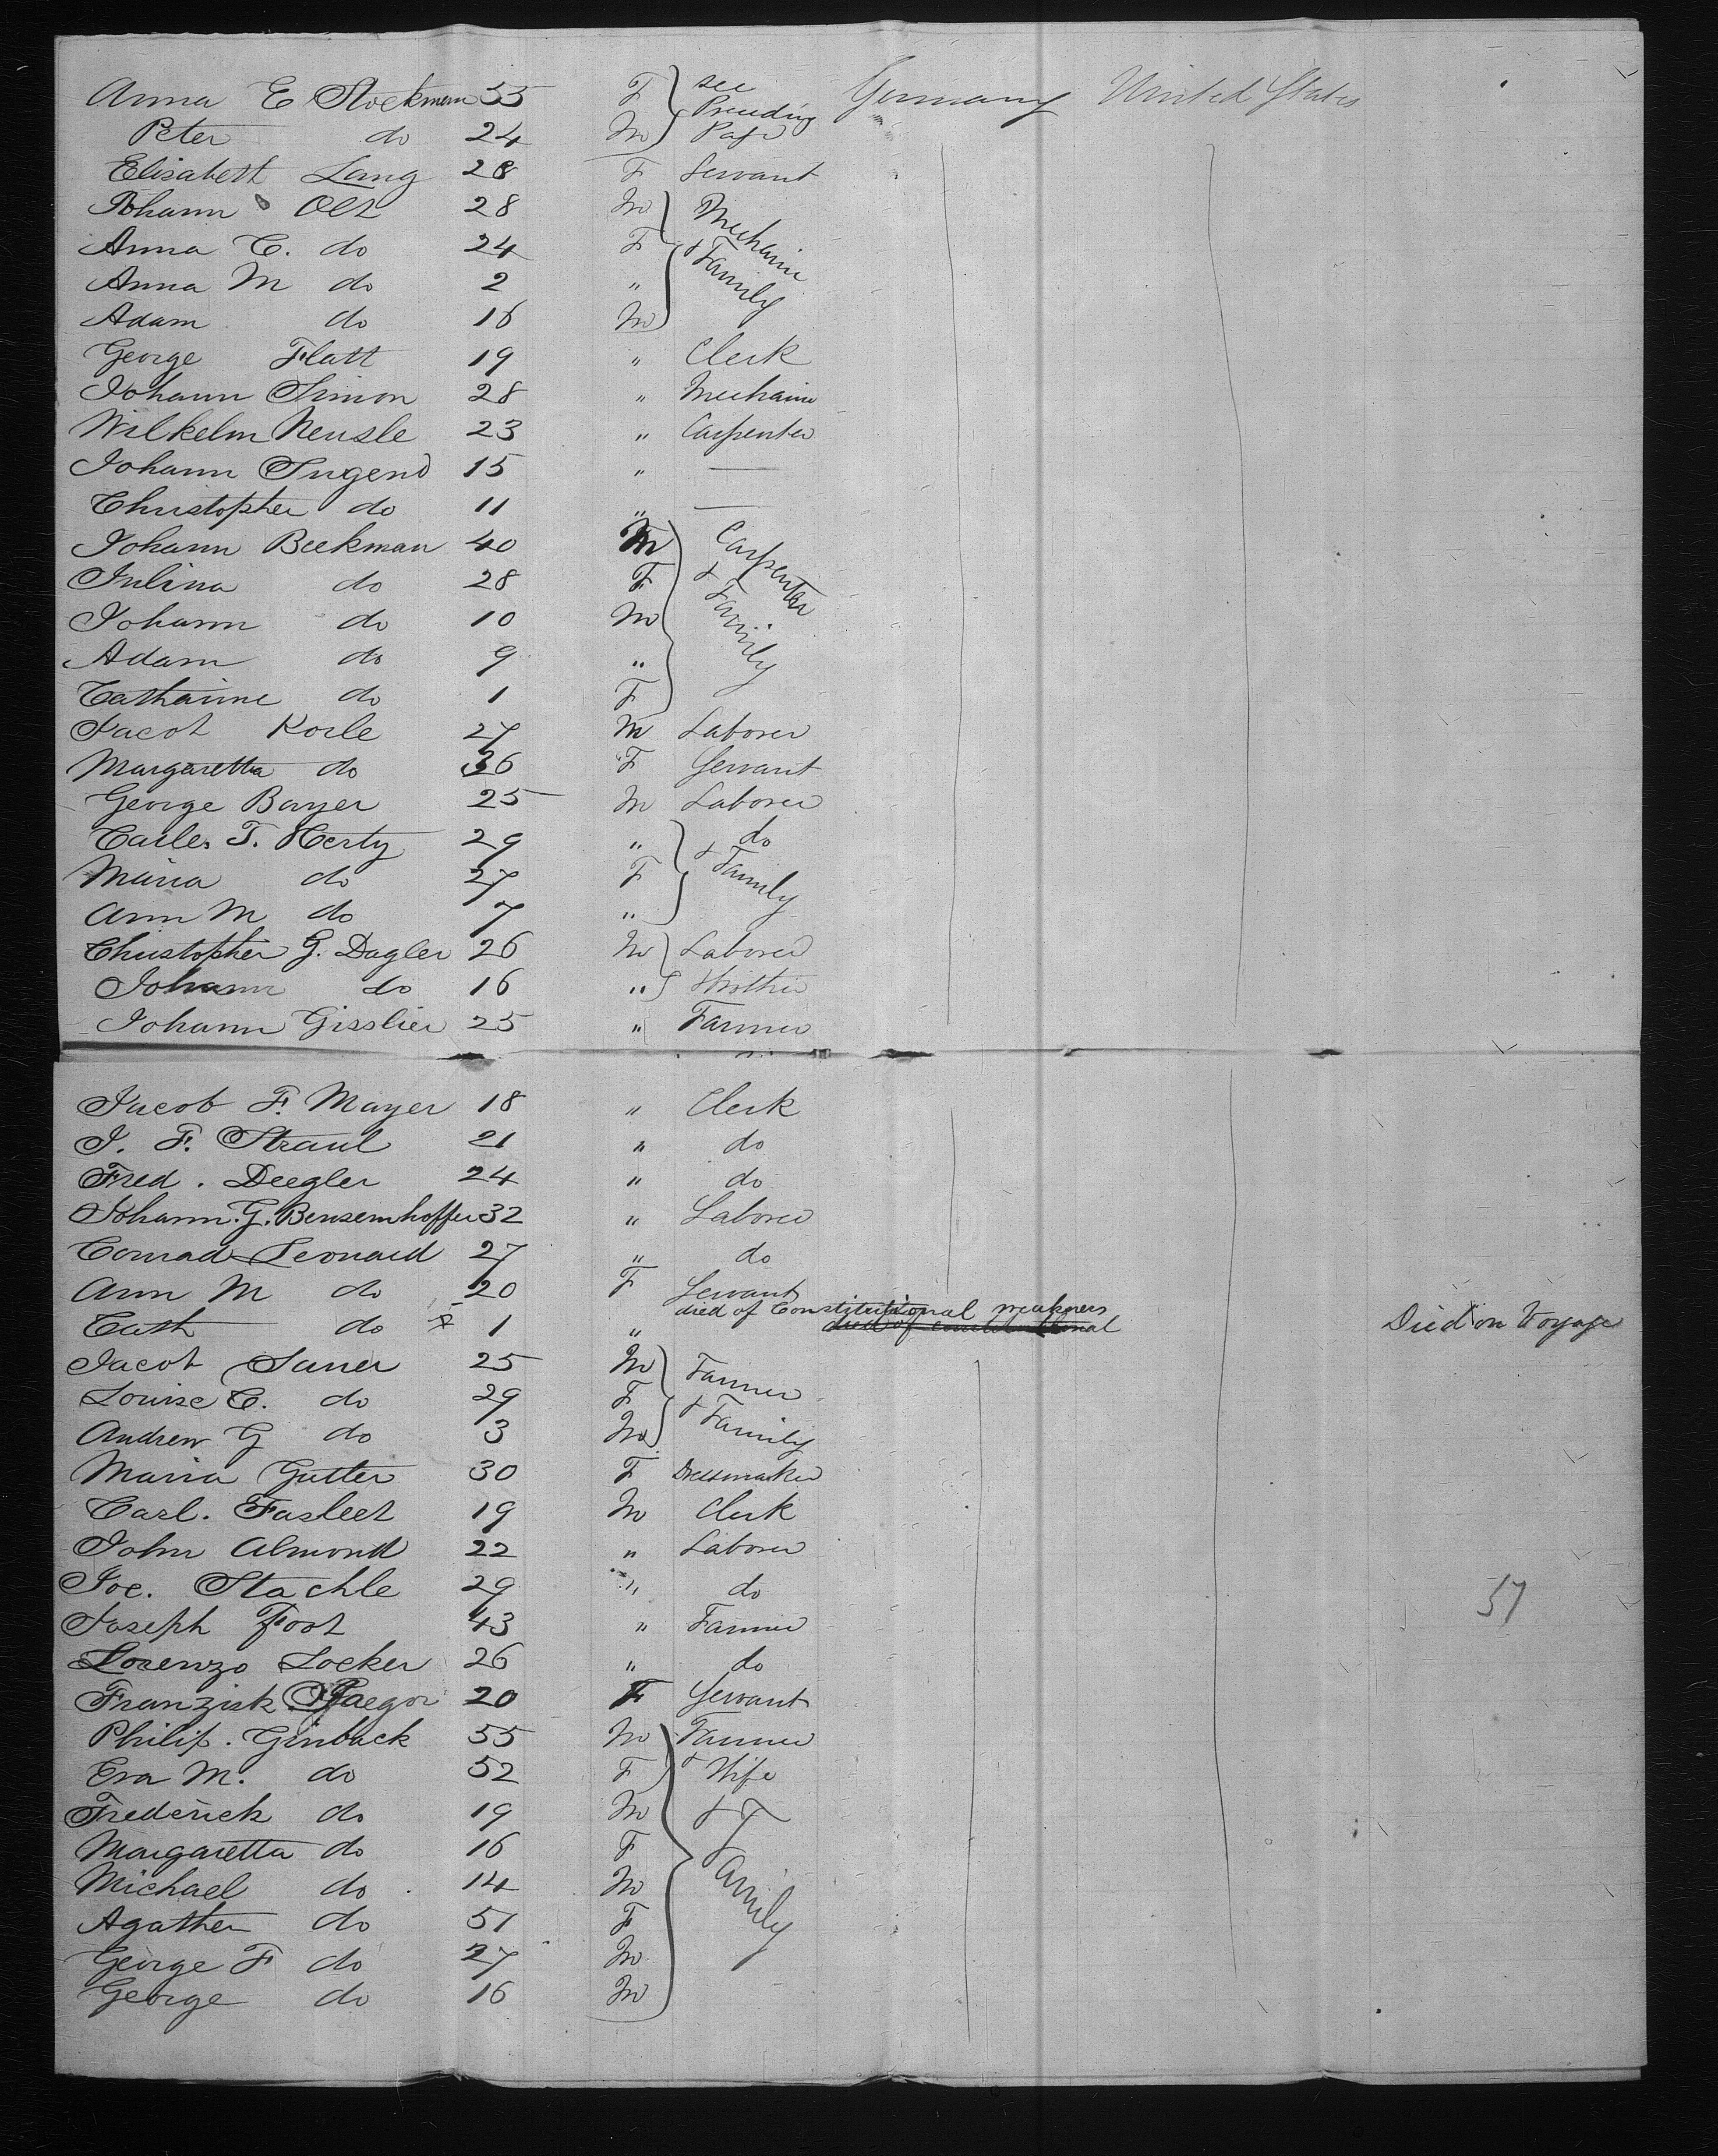 Anna E Stockman 55 F see Preceding Page Germany United States
Peter do 24 M
Elisabeth Lang 28 F Servant
Johann Olt 28 M Mechanic & Family
Anna C. do 24 F
Anna M do 2 "
Adam do 16 M
George Flatt 19 " Clerk
Johann Simon 28 " Mechanic
Wilhelm Neusle 23 " Carpenter
Johann Jugend 15 " —
Christopher do 11 " —
Johann Beekman 40 M Carpenter & Family
Julina do 28 F
Johann do 10 M
Adam do 9 "
Catharine do 1 F
Jacob Korle 27 M Laborer
Margaretta do 26 F Servant
George Bayer 25 M Laborer
Carles T. Herty 29 " do & Family
Maria do 27 F
Ann M do 7 "
Christopher G. Dagler 26 M Laborer
Johann do 16 " Brother
Johann Gisslier 25 " Farmer
Jacob F. Mayer 18 " Clerk
J. F. Straul 21 " do
Fred. Deegler 24 " do
Johann. G. Bensemhoffer 32 " Laborer
Conrad Leonard 27 " do
Ann M do 20 F Servant
Cath do 1 " died of Constitutional weakness died of constitutional Died on Voyage
Jacob Saner 25 M Farmer & Family
Louise C. do 29 F
Andrew G do 3 M
Maria Gutter 30 F Dressmaker
Carl. Fasleet 19 M Clerk
John Almond 22 " Laborer
Joe. Stachle 29 " do 57
Joseph Foot 43 " Farmer
Lorenzo Locker 26 " do
Franzisk 20 F Servant
Philip. Ginback 55 M Farmer
Eva M. do 52 F & Wife
Frederick do 19 M & Family
Margaretta do 16 F
Michael do 14 M
Agather do 51 F
George F do 27 M
George do 16 M